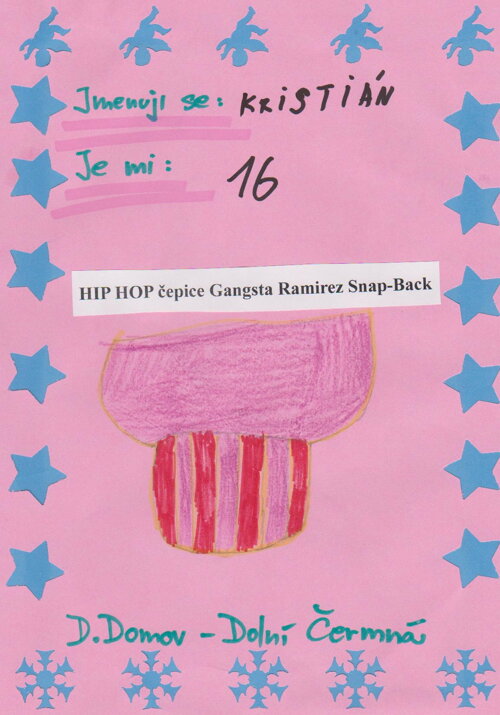 Jmenuji se: KRiSTiÁN
Je mi: 16
HIP HOP čepice Gangsta Ramirez Snap-Back
D.Domov - Dolní Čermná